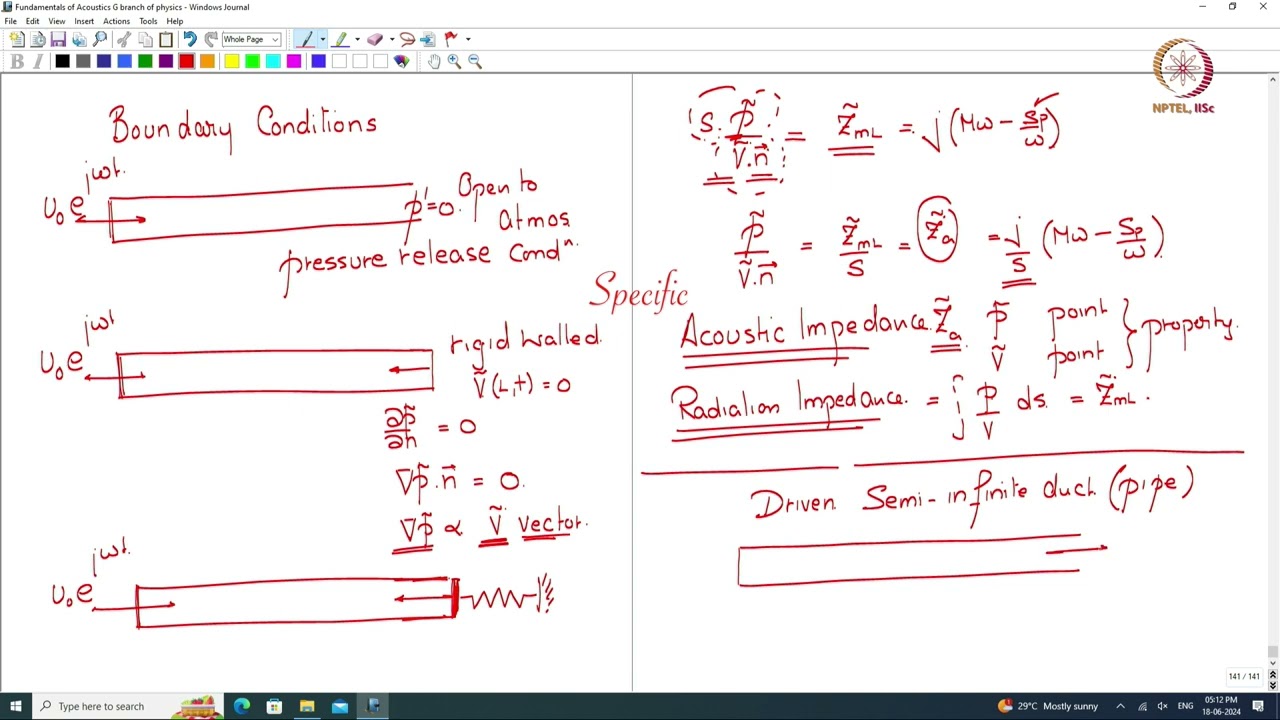 Fundamentals of Acoustics G branch of physics - Windows Journal
File Edit View Insert Actions Tools Help
Whole Page
B I
NPTEL, IISc
Boundary Conditions
U₀e^jωt
p' = 0. Open to
atmos
pressure release Condⁿ.
U₀e^jωt
rigid walled.
Ṽ(L,t) = 0
∂p̃/∂n = 0
∇p̃.n⃗ = 0.
∇p̃ ∝ Ṽ vector.
U₀e^jωt
S.p̃/Ṽ.n⃗ = Z̃mL = j(Mω - Sp/ω)
p̃/Ṽ.n⃗ = Z̃mL/S = Z̃a = j/S (Mω - Sp/ω).
Specific
Acoustic Impedance Z̃a p̃ point
Ṽ point } property.
Radiation Impedance = ∫ p/V ds = Z̃mL.
Driven Semi-infinite duct (pipe)
141 / 141
Type here to search
29°C Mostly sunny
ENG
05:12 PM
18-06-2024